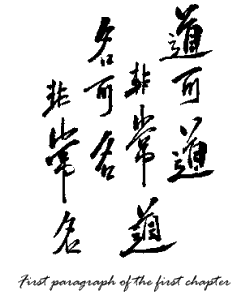 道可道
非常道
名可名
非常名
First paragraph of the first chapter